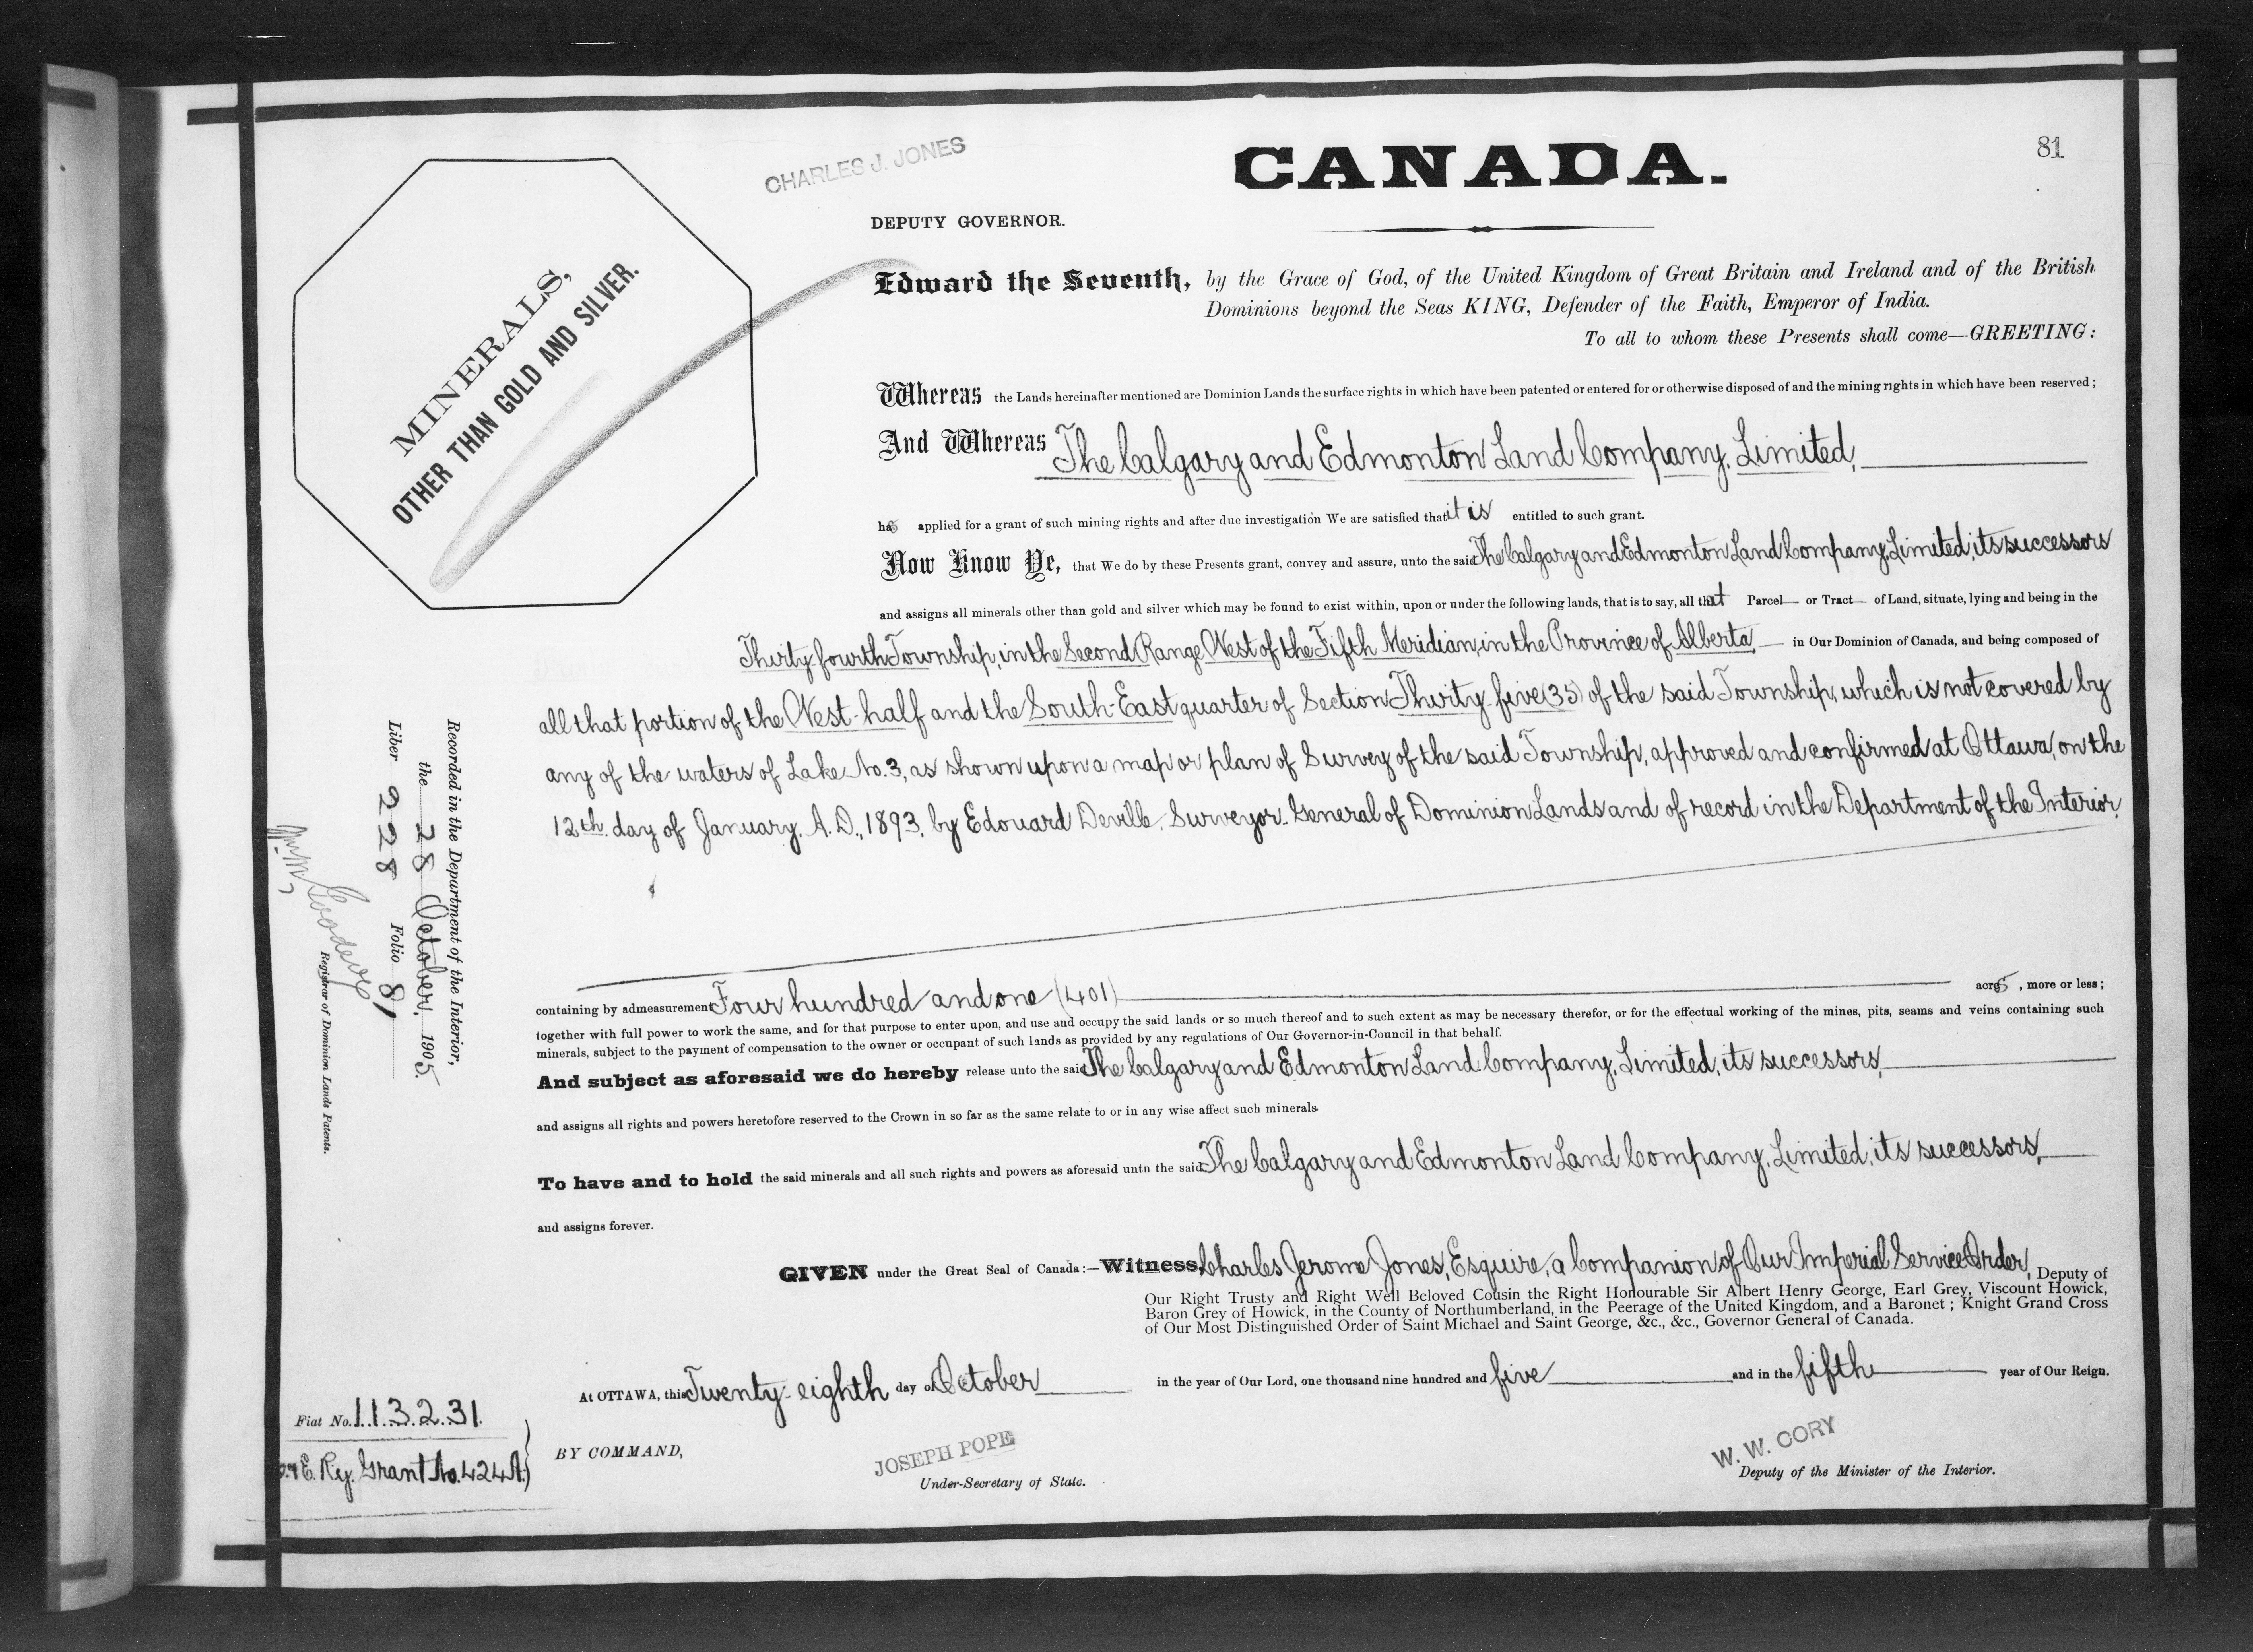 81
CANADA.
CHARLES J. JONES
DEPUTY GOVERNOR.
MINERALS,
OTHER THAN GOLD AND SILVER.
Edward the Seventh, by the Grace of God, of the United Kingdom of Great Britain and Ireland and of the British
Dominions beyond the Seas KING, Defender of the Faith, Emperor of India.
To all to whom these Presents shall come—GREETING:
Whereas the Lands hereinafter mentioned are Dominion Lands the surface rights in which have been patented or entered for or otherwise disposed of and the mining rights in which have been reserved;
And Whereas The Calgary and Edmonton Land Company, Limited,
has applied for a grant of such mining rights and after due investigation We are satisfied that it is entitled to such grant.
Now Know Ye, that We do by these Presents grant, convey and assure, unto the said The Calgary and Edmonton Land Company, Limited, its successors
and assigns all minerals other than gold and silver which may be found to exist within, upon or under the following lands, that is to say, all that Parcel or Tract of Land, situate, lying and being in the
Thirty fourth Township, in the Second Range West of the Fifth Meridian, in the Province of Alberta, in Our Dominion of Canada, and being composed of
all that portion of the West-half and the South-East quarter of Section Thirty five (35) of the said Township, which is not covered by
any of the waters of Lake No. 3, as shown upon a map or plan of Survey of the said Township, approved and confirmed at Ottawa, on the
12th day of January, A.D., 1893, by Edouard Deville, Surveyor-General of Dominion Lands and of record in the Department of the Interior,
containing by admeasurement Four hundred and one (401) acres, more or less;
together with full power to work the same, and for that purpose to enter upon, and use and occupy the said lands or so much thereof and to such extent as may be necessary therefor, or for the effectual working of the mines, pits, seams and veins containing such
minerals, subject to the payment of compensation to the owner or occupant of such lands as provided by any regulations of Our Governor-in-Council in that behalf.
And subject as aforesaid we do hereby release unto the said The Calgary and Edmonton Land Company, Limited, its successors,
and assigns all rights and powers heretofore reserved to the Crown in so far as the same relate to or in any wise affect such minerals.
To have and to hold the said minerals and all such rights and powers as aforesaid untn the said The Calgary and Edmonton Land Company, Limited, its successors,
and assigns forever.
GIVEN under the Great Seal of Canada:—Witness, Charles Jerome Jones, Esquire, a Companion of Our Imperial Service Order, Deputy of
Our Right Trusty and Right Well Beloved Cousin the Right Honourable Sir Albert Henry George, Earl Grey, Viscount Howick,
Baron Grey of Howick, in the County of Northumberland, in the Peerage of the United Kingdom, and a Baronet; Knight Grand Cross
of Our Most Distinguished Order of Saint Michael and Saint George, &c., &c., Governor General of Canada.
At OTTAWA, this Twenty-eighth day of October in the year of Our Lord, one thousand nine hundred and five and in the fifth year of Our Reign.
BY COMMAND,
JOSEPH POPE
Under-Secretary of State.
W. W. CORY
Deputy of the Minister of the Interior.
Recorded in the Department of the Interior,
the 28 October, 1905.
Liber 228 Folio 81
Registrar of Dominion Lands Patents.
Fiat No. 113231.
E. Ry. Grant No. 424 A.